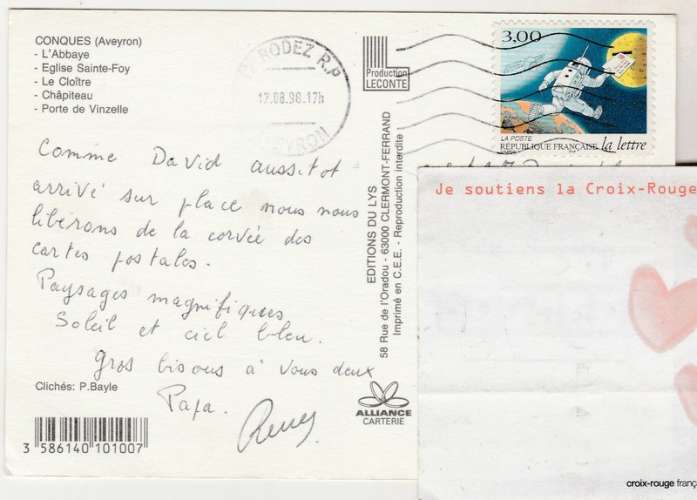 CONQUES (Aveyron)
- L'Abbaye
- Eglise Sainte-Foy
- Le Cloître
- Châpiteau
- Porte de Vinzelle
RODEZ R.P
17h
AVEYRON
Production
LECONTE
3,00
LA POSTE
RÉPUBLIQUE FRANÇAISE la lettre
Comme David aussitot
arrivé sur place nous nous
libérons de la corvée des
cartes postales.
Paysages magnifiques
Soleil et ciel bleu.
gros bisous à vous deux
Papa.
EDITIONS DU LYS
58 Rue de l'Oradou - 63000 CLERMONT-FERRAND
Imprimé en C.E.E. - Reproduction interdite
Clichés: P.Bayle
3 586140 101007
ALLIANCE
CARTERIE
Je soutiens la Croix-Rouge
croix-rouge franç